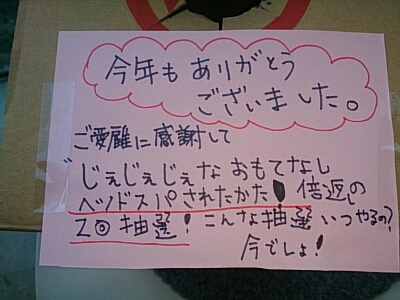 今年もありがとう
ございました。
ご愛雇に感謝して
じぇじぇじぇなおもてなし
ヘッドスパされたかた！倍返しの
Z◎抽選！こんな抽選いつやるの？
今でしょ！